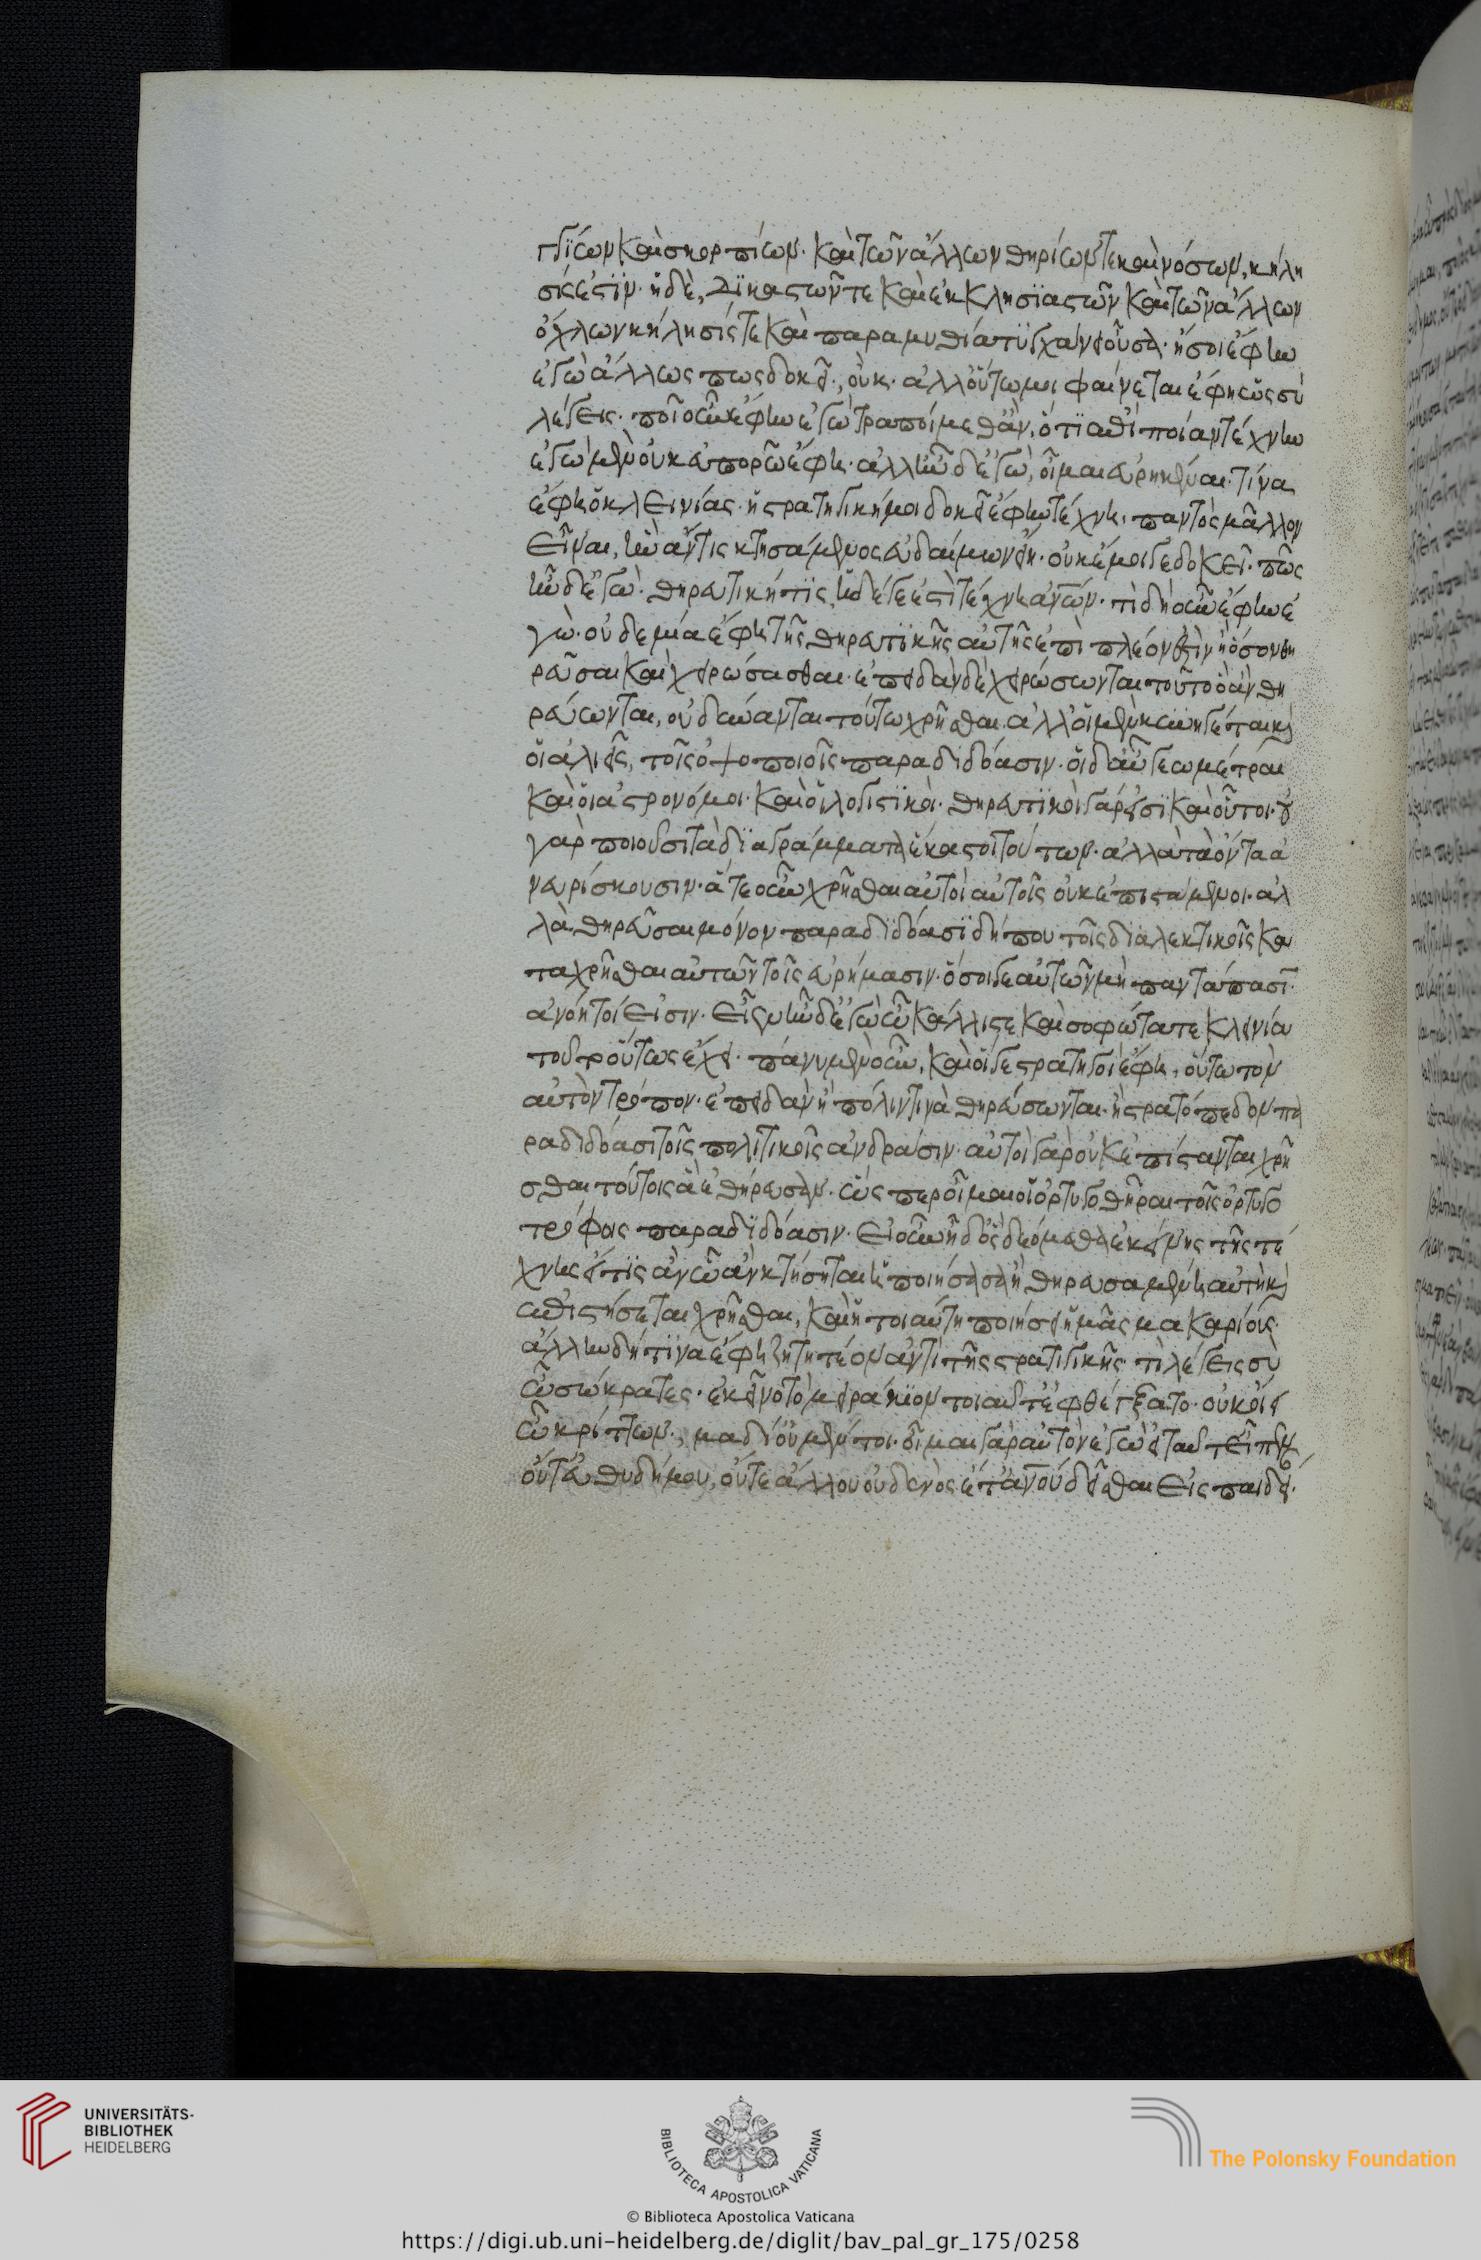 γγίων καὶ σκορπίων· καὶ τῶν ἄλλων θηρίων τε καὶ νόσων, κήλη
σίς ἐστιν· ἡ δὲ, δικαστῶν τε καὶ ἐκκλησιαστῶν καὶ τῶν ἄλλων
ὄχλων κήλησίς τε καὶ παραμυθία τυγχάνει οὖσα· ἤ σοι ἔφην
ἐγὼ ἄλλως πως δοκεῖ· οὐκ· ἀλλ' οὕτω μοι φαίνεται ἔφη ὡς σὺ
λέγεις· ποῖ οὖν ἔφην ἐγὼ τραποίμεθ' ἂν, ποίαν τέχνην
ἐγὼ μὲν οὐκ εὐπορῶ ἔφη· ἀλλ' ἦν δ' ἐγὼ, οἶμαι εὑρηκέναι· τίνα
ἔφη ὁ κλεινίας· ἡ στρατηγική μοι δοκεῖ ἔφην τέχνη, παντὸς μᾶλλον
εἶναι, ἣν ἄν τις κτησάμενος εὐδαίμων εἴη· οὐκ ἔμοιγε δοκεῖ· πῶς
ἦν δ' ἐγώ· θηρευτική τις ἥδέ γε ἐστὶ τέχνη ἀνῶν· τί δὴ οὖν ἔφην ἐ
γώ· οὐδεμία ἔφη τῆς θηρευτικῆς αὐτῆς ἐπὶ πλέον ἐστὶν ἢ ὅσον θη
ρεῦσαι καὶ χειρώσασθαι· ἐπειδὰν δὲ χειρώσωνται τοῦτο ὃ ἂν θη
ρεύωνται, οὐ δύνανται τούτω χρῆσθαι· ἀλλ' οἱ μὲν κυνηγέται καὶ
οἱ ἁλιεῖς, τοῖς ὀψοποιοῖς παραδιδόασιν· οἱ δ' αὖ γεωμέτραι
καὶ οἱ ἀστρονόμοι· καὶ οἱ λογιστικοὶ· θηρευτικοὶ γάρ εἰσι καὶ οὗτοι· οὐ
γὰρ ποιοῦσι τὰ διαγράμματα ἕκαστοι τούτων· ἀλλὰ τὰ ὄντα ἀ
νευρίσκουσιν· ἅτε οὖν χρῆσθαι αὐτοὶ αὐτοῖς οὐκ ἐπιστάμενοι· ἀλ
λὰ θηρεῦσαι μόνον παραδιδόασι δήπου τοῖς διαλεκτικοῖς κα
ταχρῆσθαι αὐτῶν τοῖς εὑρήμασιν· ὅσοι γε αὐτῶν μὴ παντάπασι
ἀνόητοί εἰσιν· εἶεν ἦν δ' ἐγὼ ὦ κάλλιστε καὶ σοφώτατε κλεινία
τοῦτο οὕτως ἔχει· πάνυ μὲν οὖν, καὶ οἵ γε στρατηγοὶ ἔφη, οὕτω τὸν
αὐτὸν τρόπον· ἐπειδὰν ἢ πόλιν τινὰ θηρεύσωνται· ἢ στρατόπεδον πα
ραδιδόασι τοῖς πολιτικοῖς ἀνδράσιν· αὐτοὶ γὰρ οὐκ ἐπίστανται χρῆ
σθαι τούτοις ἃ ἐθήρευσαν· ὥσπερ οἶμαι οἱ ὀρτυγοθῆραι τοῖς ὀρτυγο
τρόφοις παραδιδόασιν· εἰ οὖν ἦ δ' ὃς δεόμεθα ἐκείνης τῆς τέ
χνης ἥτις ἂν ὧ ἂν κτήσηται ἢ ποιήσασα ἢ θηρευσαμένη αὐτὴ καὶ
ἐπιστήσεται χρῆσθαι, καὶ ἡ τοιαύτη ποιήσει ἡμᾶς μακαρίους·
ἄλλην δή τινα ἔφη ζητητέον ἀντὶ τῆς στρατιγικῆς· τί λέγεις σὺ
ὦ σώκρατες· ἐκεῖνο τὸ μειράκιον τοιαῦτ' ἐφθέγξατο· οὐκ οἴει
ὦ κρίτων· μὰ δι' οὐ μέν τοι· οἶμαι γὰρ αὐτὸν ἐγὼ εἰ ταῦτ' εἶπεν,
οὔτ' εὐθυδήμου, οὔτε ἄλλου οὐδενὸς ἔτ' ἀνοῦ δεῖσθαι εἰς παιδεί·
UNIVERSITÄTS-
BIBLIOTHEK
HEIDELBERG
BIBLIOTECA APOSTOLICA VATICANA
The Polonsky Foundation
© Biblioteca Apostolica Vaticana
https://digi.ub.uni-heidelberg.de/diglit/bav_pal_gr_175/0258